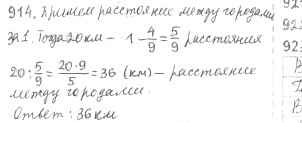 914. Примем расстояние между городами
за 1. Тогда 20 км – 1 - 4/9 = 5/9 расстояния
20 : 5/9 = 20·9/5 = 36 (км) – расстояние
между городами.
Ответ: 36 км
91
92
923